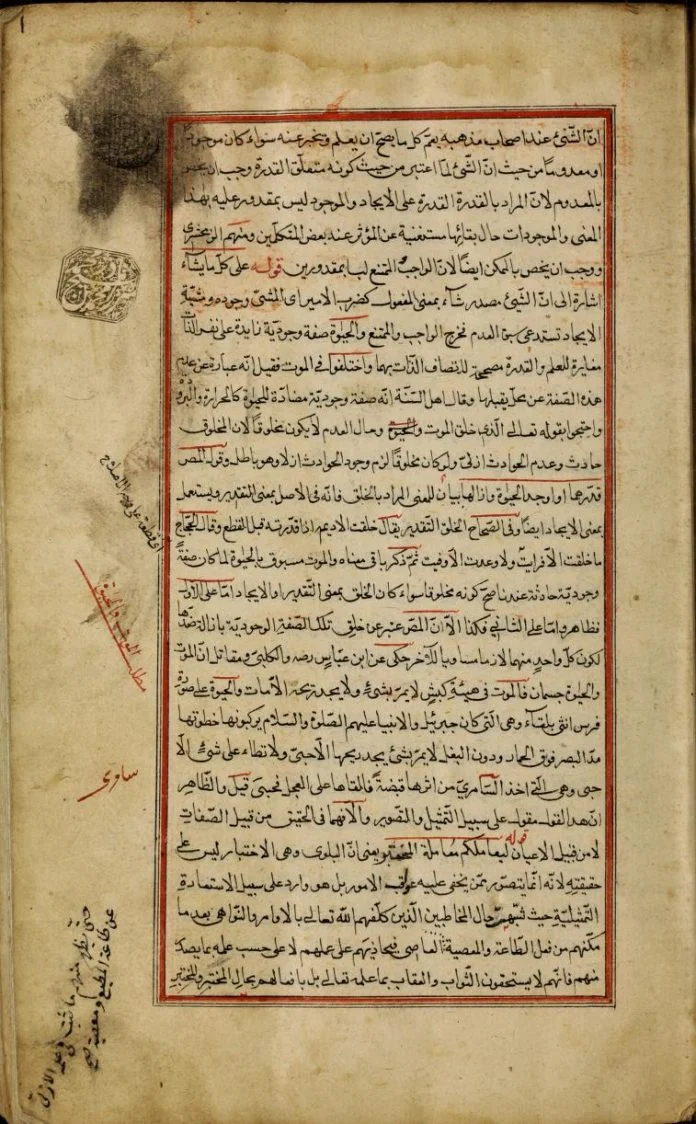 انّ الشّئ عند اصحاب مذهبه يعمّ كل ما يصحّ ان يعلم ويخبر عنه سواء كان موجودا
او معدوما من حيث انّ الشّئ لمّا اعتبر من حيث كونه متعلّق القدرة وجب ان
بالمعدوم لانّ المراد بالقدرة القدرة على الايجاد والموجود ليس بمقدور عليه بهذا
المعنى والموجودات حال بقائها مستغنية عن المؤثر عند بعض المتكلّمين ومنهم الزمخشرى
ووجب ان يخصّ بالممكن ايضًا لانّ الواجب الممتنع ليسا بمقدورين قوله على كلّ ما يشاء
اشارة الى انّ الشّئ مصدر شاء بمعنى المفعول كضرب الامير اى المشئ وجوده ومشيّة
الايجاد تستدعى سبق العدم فخرج الواجب والممتنع والحيوة صفة وجوديّة زايدة على نفس الذّات
مغايرة للعلم والقدرة مصحّحة لاتصاف الذّات بهما واختلفوا فى الموت فقيل انّه عبارة عن عدم
هذه الصّفة عن محلّ يقبلها وقال اهل السّنّة انّه صفة وجوديّة مضادّة للحيوة كالحرارة والبرودة
واحتجّوا بقوله تعالى الّذى خلق الموت والحيوة وحال العدم لا يكون مخلوقًا لان المخلوق
حادث وعدم الحوادث ازلىّ ولو كان مخلوقًا لزم وجود الحوادث ازلا وهو باطل وقول المص
قدّرهما او اوجد الحيوة وازالها بيان للمعنى المراد بالخلق فانّه فى الاصل بمعنى التقدير ويستعمل
بمعنى الايجاد ايضًا وفى الصّحاح الخلق التّقدير يقال خلقت الاديم اذا قدّرته قبل القطع وقال الحجّاج
ما خلقت الّا فريت ولا وعدت الّا وفيت ثمّ ذكر باقى معناه والموت مسبوق بالحيوة لما كان صفةً
وجوديّة حادثة عندنا صحّ كونه مخلوقا سواء كان الخلق بمعنى التّقدير او الايجاد امّا على الاوّل
فظاهر وامّا على الثانى فكذا الّا انّ المصّ عبّر عن خلق تلك الصّفة الوجوديّة بازالة ضدّها
لكون كلّ واحد منهما لازما مساويا للآخر حكى عن ابن عبّاس رضه والكلبىّ ومقاتل انّ الموت
والحيوة جسمان فالموت فى هيئة كبش لا يمرّ بشئ ولا يجد ريحه الّا مات والحيوة على صورة
فرس انثى بلقاء وهى الّتى كان جبريل والانبيا عليهم الصّلوة والسّلام يركبونها خطوتها
مدّ البصر فوق الحمار ودون البغل لا يمرّ بشئ يجد ريحها الّا حيى ولا تطاء على شئ الّا
حيى وهى الّتى اخذ السّامرىّ من اثرها قبضةً فالقاها على العجل فحيى قيل والظّاهر
انّ هذا القول مقول على سبيل التّمثيل والتّصوير والّا فهما فى التحقيق من قبيل الصّفات
لا من قبيل الاعيان قوله ليعاملكم معاملة المختبر يعنى انّ البلوى وهى الاختبار ليس على
حقيقته لانّه انّما يتصوّر ممّن يخفى عليه عواقب الامور بل هو وارد على سبيل الاستعارة
التّمثيليّة حيث شبّه حال المخاطبين الّذين كلّفهم اللّه تعالى بالاوامر والنّواهى بعد ما
مكّنهم من فعل الطّاعة والمعصية فيجازيهم على عملهم لا على حسب علمه بما يصدر
منهم فانّهم لا يستحقّون الثّواب والعقاب بما علمه تعالى بل بافعالهم بحال المختبر والمختبر
مطلب الموت والحيوة